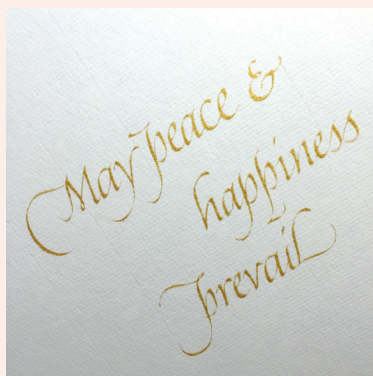 May peace &
happiness
prevail